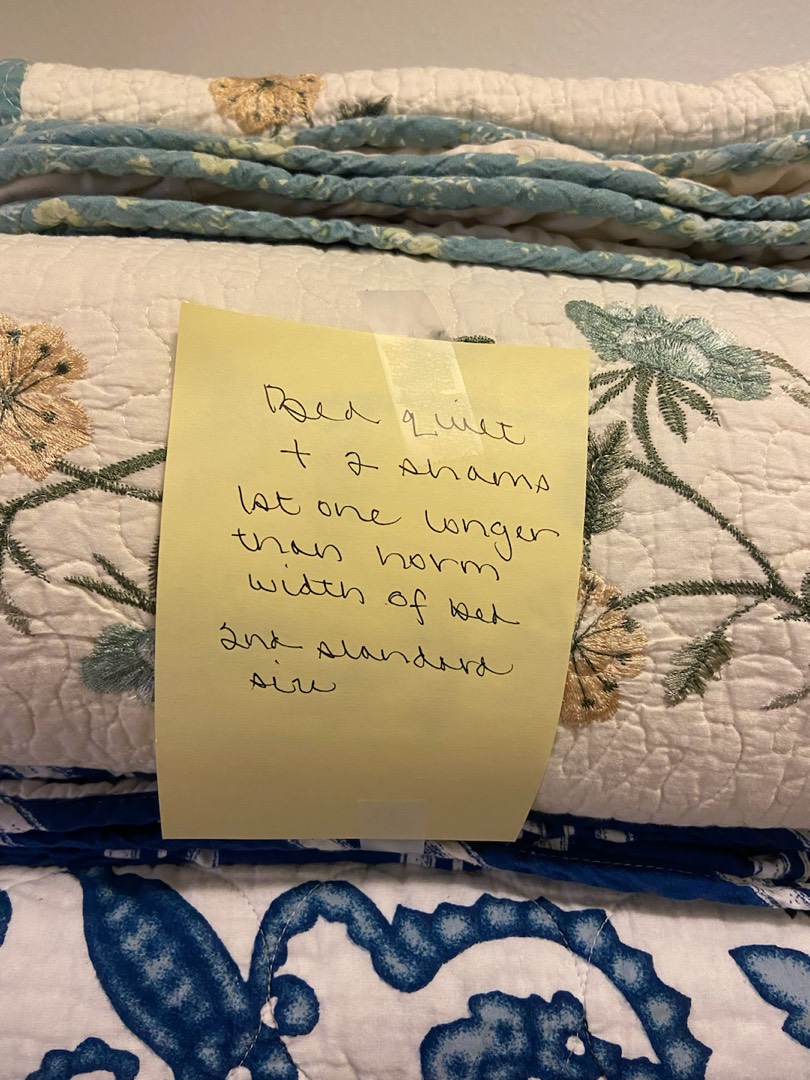 Bed quilt
+ 2 shams
1st one longer
than norm
width of bed
2nd standard
size